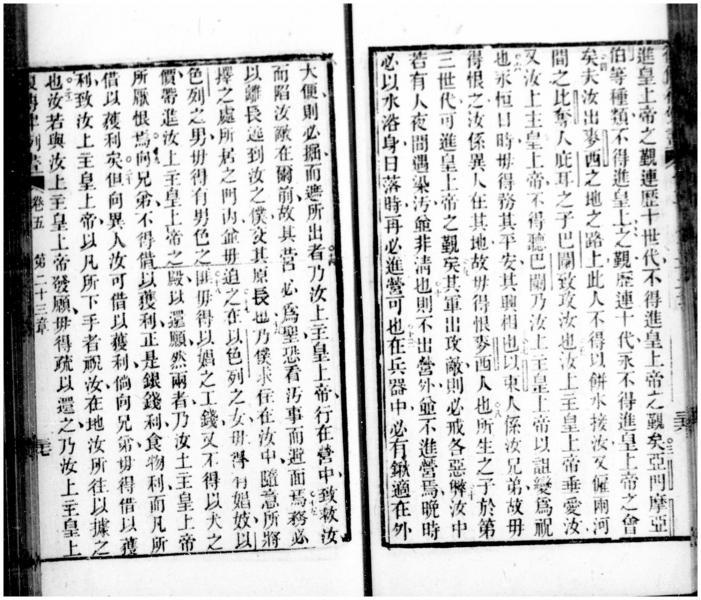 進皇上帝之覲連歷十世代不得進皇上帝之覲矣亞門摩亞
伯等種類不得進皇上之覲歷連十代永不得進皇上帝之會
矣夫汝出麥西之地之路上此人不得以餅水接汝又僱兩河
間之比奪人庇耳之子巴闌致攻汝也汝上主皇上帝垂愛汝
又汝上主皇上帝不得聽巴闌乃汝上主皇上帝以詛變為祝
也永恒日時毋得務其平安其興相也以東人係汝兄弟故毋
得恨之汝係異人在其地故毋得恨麥西人也所生之子於第
三世代可進皇上帝之覲矣其軍出攻敵則必戒各惡弊汝中
若有人夜間遇染汚並非清也則不出營外並不進營焉晚時
必以水浴身日落時再必進營可也在兵器中必有鍬適在外
大便則必掘而遮所出者乃汝上主皇上帝行在營中致救汝
而陷汝敵在爾前故其營必為聖恐看汚事而避面焉務必
以離長遠到汝之僕交其原長也乃僕求住在汝中隨意所將
擇之處所居之門內並毋追之在以色列之女毋得有娼妓以
色列之男毋得有男色之匪毋得以娼之工錢又不得以犬之
價帶進汝上主皇上帝之殿以還願然兩者乃汝上主皇上帝
所厭恨焉向兄弟不得借以獲利正是銀錢利食物利而凡所
借以獲利矣但向異人汝可借以獲利倘向兄弟毋得借以獲
利致汝上主皇上帝以凡所下手者祝汝在地汝所往以據之
也汝若與汝上主皇上帝發願毋得疏以還之乃汝上主皇上
卷五 第二十三章